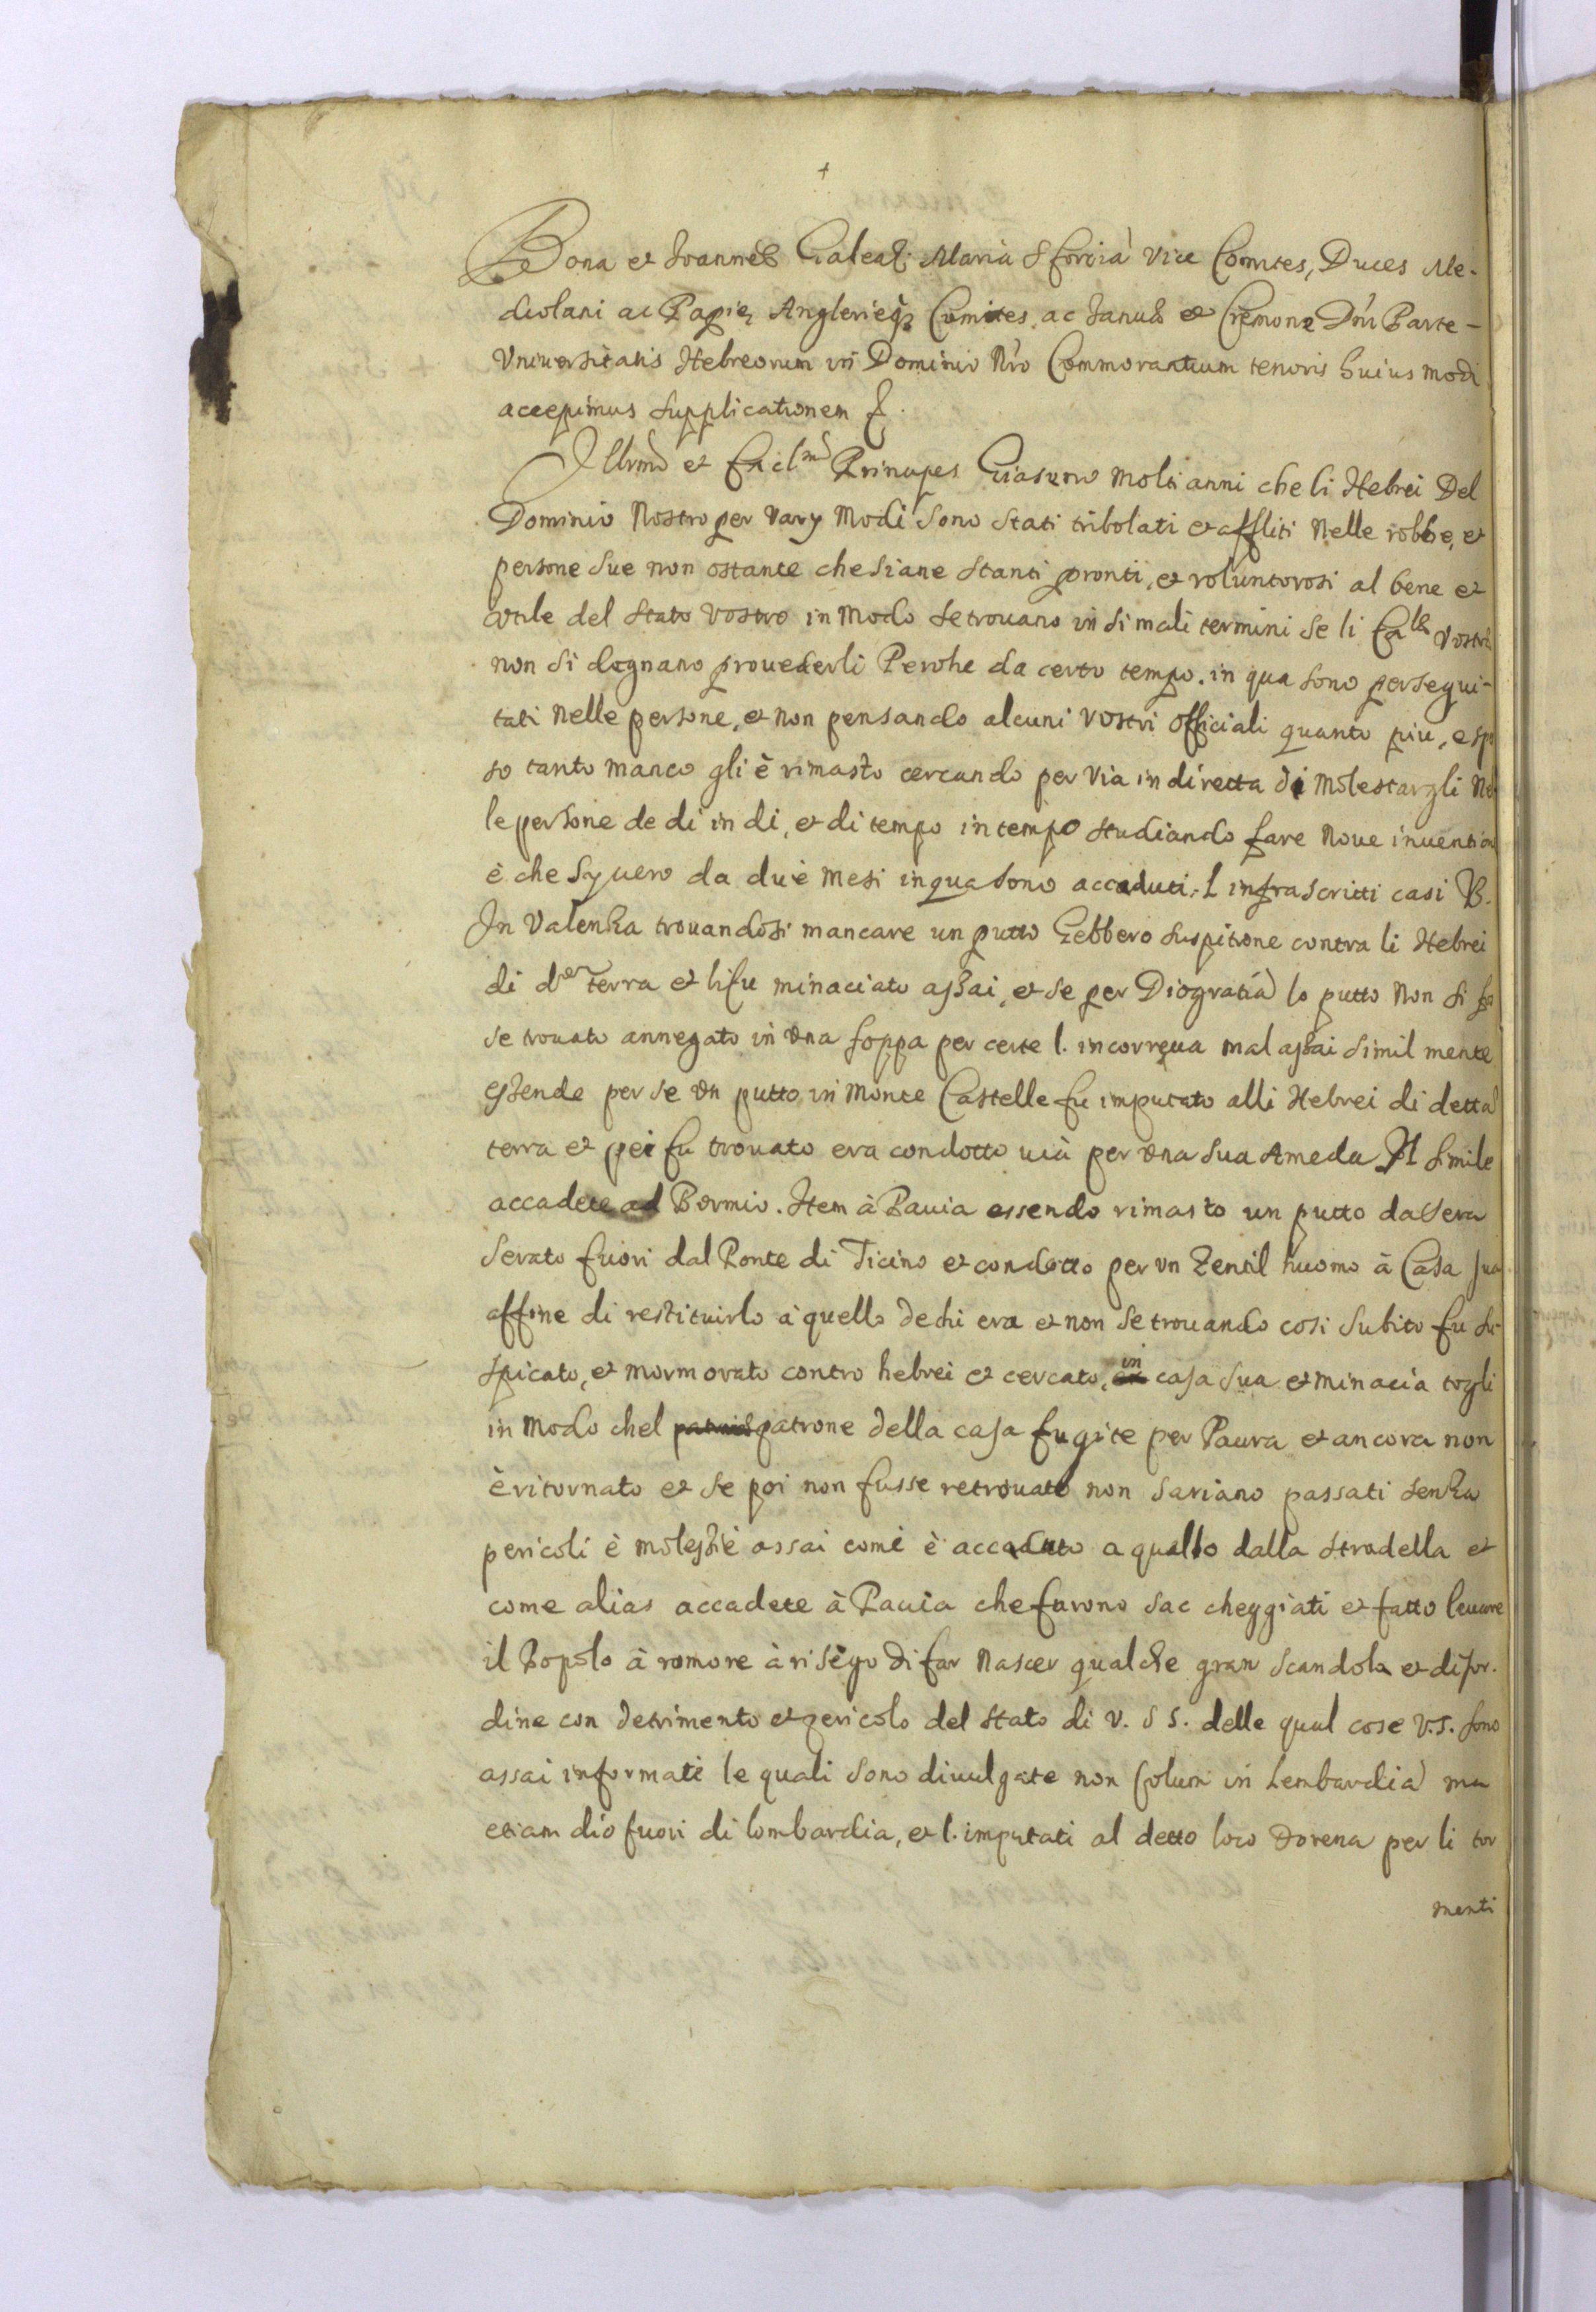 +
Bona et Joannes Galeaz Maria Sforcia Vice Comites, Duces Me-
diolani ac Papie, Anglerieq3 Comites, ac Janue et Cremone Dni Parte-
Universitatis Hebreorum in Dominio Nro Commorantium tenoris huius modi
accepimus supplicationem
Illmi et Excl.mi Principes Gia sono molti anni che li Hebrei Del
Dominio Nostro per Vary Modi Sono Stati tribolati et affliti Nelle robbe, et
persone Sue non ostante che siane stanti pronti, et voluntorosi al bene et
utile del Stato Vostro in Modo Se trovano in si mali termini se li Ca.le Vostre
non Si degnano provederli Perche da certo tempo. in qua Sono persegui-
tati Nelle persone, et non pensando alcuni Vostri Officiali quanto piu, e sp
so tanto manco gli è rimasto cercando per Via in diretta di Molestargli Ne
le persone de di in di, et di tempo in tempo studiando fare Nove invention
è che Sy vero da due mesi in qua Sono accaduti. l infrascritti casi B.
In Valenza trovandosi mancare un putto Hebbero Suspitione contra li Hebrei
di d.a terra et li fu minaciato assai, et se per Dio gratia lo putto Non Si fo
Se trovato annegato in una foppa per certe l. incorreva mal assai Simil mente
essende perse un putto in Monte Castelle fu imputato alli Hebrei di detta
terra et poi fu trovato era condotto via per una Sua Ameda Il Simile
accadete ad Bormio. Item à Pavia essendo rimasto un putto da Sera
Serato fuori dal Ponte di Ticino et condotto per un Zentil huomo à Casa sua
affine di restituirlo à quello de chi era et non Se trovando cosi Subito fu Su-
spicato, et mormorato contro hebrei et cercato, in casa Sua et minacia togli
in Modo chel patrone della casa fugite per Paura et ancora non
è ritornato et Se poi non fusse retrovato non Sariano passati Senza
pericoli è molestie assai come è accaduto a quello dalla Stradella et
come alias accadete à Pavia che furono Sac cheggiati et fatto levare
il Popolo à romore à risego di far Nascer qualche gran Scandolo et disor-
dine con detrimento et pericolo del Stato di V. S S. delle qual cose V. S. Sono
assai informati le quali Sono divulgate non Solum in Lombardia ma
etiam dio fuori di lombardia, et l. imputati al detto loco Dorena per li tor
menti